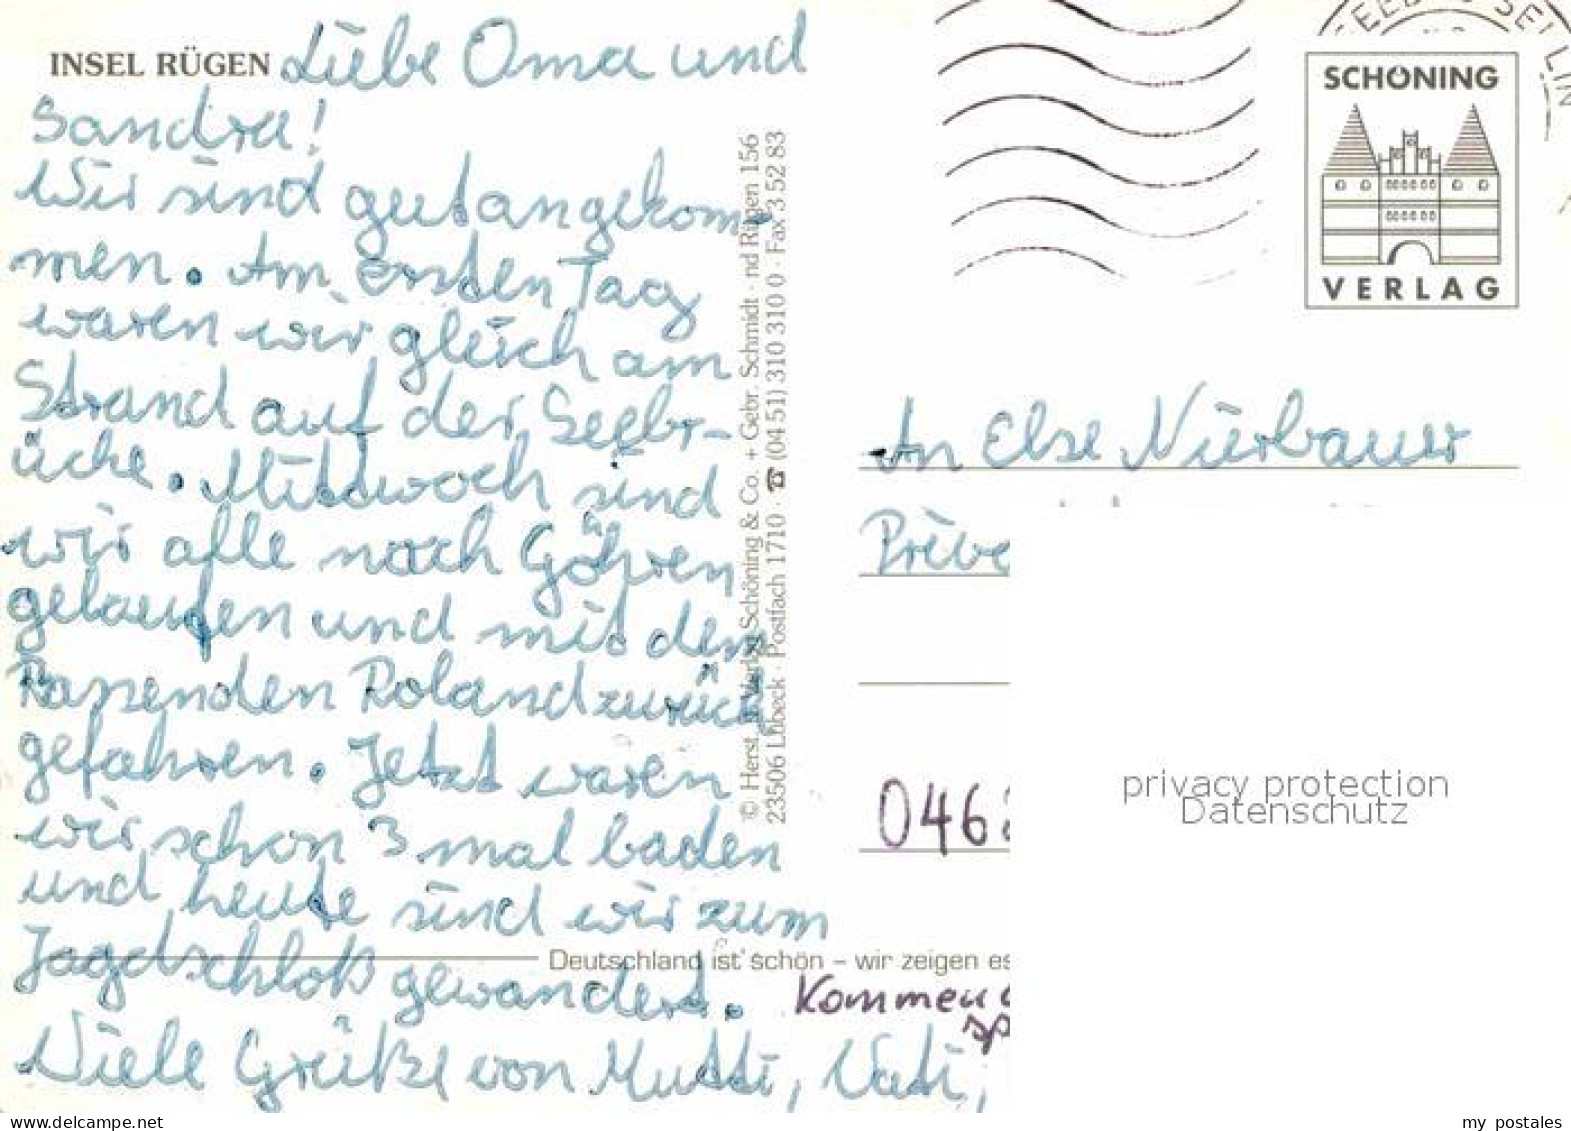 INSEL RÜGEN Liebe Oma und
Sandra!
Wir sind gut angekom-
men. Am ersten Tag
waren wir gleich am
Strand auf der Seebr-
ücke. Mittwoch sind
wir alle nach Göhren
gelaufen und mit dem
Rasenden Roland zurück
gefahren. Jetzt waren
wir schon 3 mal baden
und heute sind wir zum
Jagdschloß gewandert.
Viele Grüße von Mutti, Vati,
Deutschland ist schön – wir zeigen es
Kommen
sp
© Verlag Schöning & Co. + Gebr. Schmidt · nd Rügen 156
23506 Lübeck · Postfach 1710 · ☎ (04 51) 310 310 0 · Fax 3 52 83
SEEBAD SELLIN
SCHÖNING
VERLAG
An Else Nierbauer
046
privacy protection
Datenschutz
www.delcampe.net
my_postales